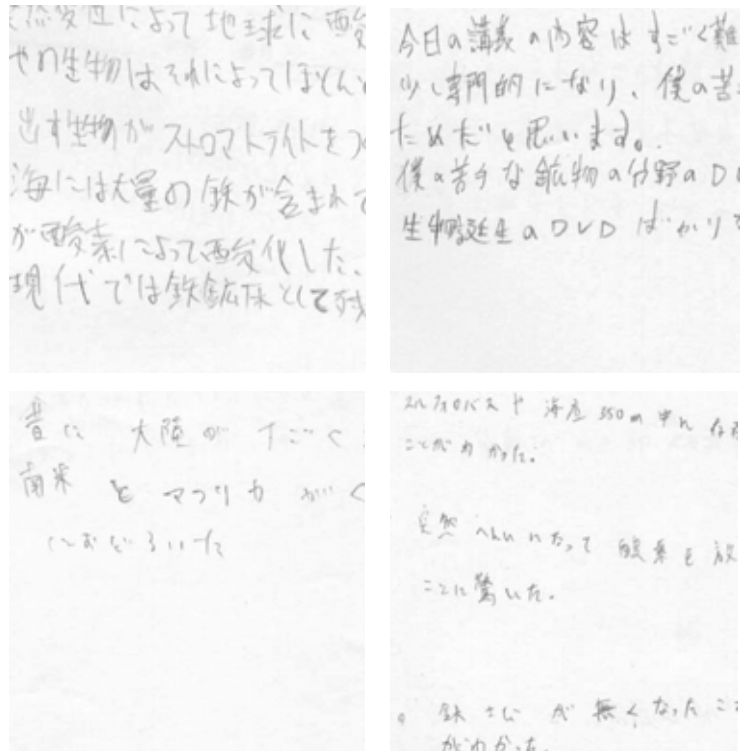 然変異によって地球に酸
の生物はそれによってほとん
出す生物がストロマトライトをつ
海には大量の鉄が含まれて
が酸素によって酸化した、
現代では鉄鉱床として残
今日の講義の内容はすごく難
少し専門的になり、僕の苦
ためだと思います。
僕の苦手な鉱物の分野のD
生物誕生のDVDばかり
昔に大陸がすごく
南米とアフリカがく
におどろいた
スルフォロバスや海底350mの中に存在
ことがわかった。
突然へんいによって酸素を放
ことに驚いた。
。鉄さびが無くなったこ
がわかった。